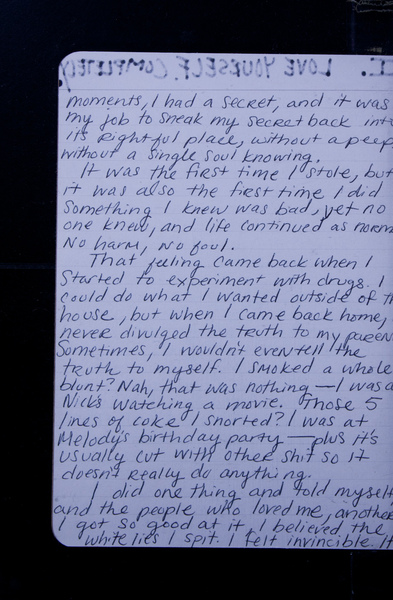 I. LOVE YOURSELF. COMPLETELY.
moments, I had a secret, and it was
my job to sneak my secret back into
its rightful place, without a peep,
without a single soul knowing.
It was the first time I stole, but
it was also the first time I did
something I knew was bad, yet no
one knew, and life continued as norm
No harm, no foul.
That feeling came back when I
started to experiment with drugs. I
could do what I wanted outside of th
house, but when I came back home,
never divulged the truth to my paren
Sometimes, I wouldn't even tell the
truth to myself. I smoked a whole
blunt? Nah, that was nothing — I was a
Nick's watching a movie. Those 5
lines of coke I snorted? I was at
Melody's birthday party — plus it's
usually cut with other shit so it
doesn't really do anything.
I did one thing and told myself
and the people who loved me, another
I got so good at it, I believed the
white lies I spit. I felt invincible. It